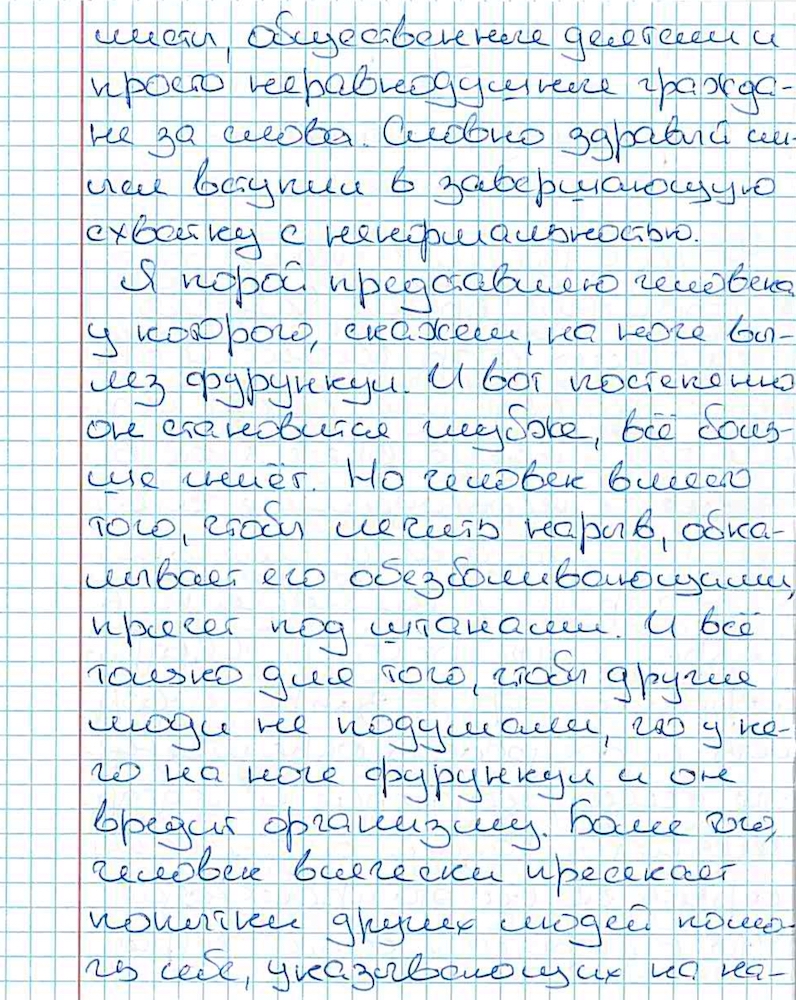 листы, общественные деятели и
просто неравнодушные гражда-
не за слова. Словно здравый см-
ысл вступил в завершающую
схватку с ненормальностью.
Я порой представляю человека
у которого, скажем, на ноге вы-
лез фурункул. И вот постепенно
он становится глубже, всё боль-
ше гниёт. Но человек вместо
того, чтобы лечить нарыв, обка-
лывает его обезболивающими,
прячет под штанами. И всё
только для того, чтобы другие
люди не подумали, что у не-
го на ноге фурункул и он
вредит организму. Более того,
человек всячески пресекает
попытки других людей помо-
гь себе, указывающих на на-